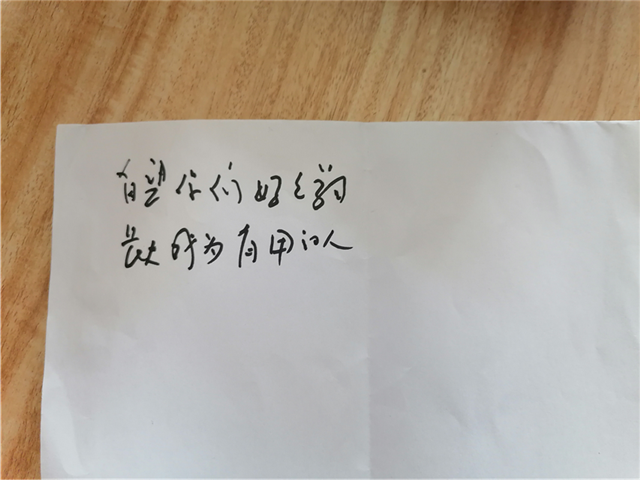 希望你们好好学习
长大成为有用的人